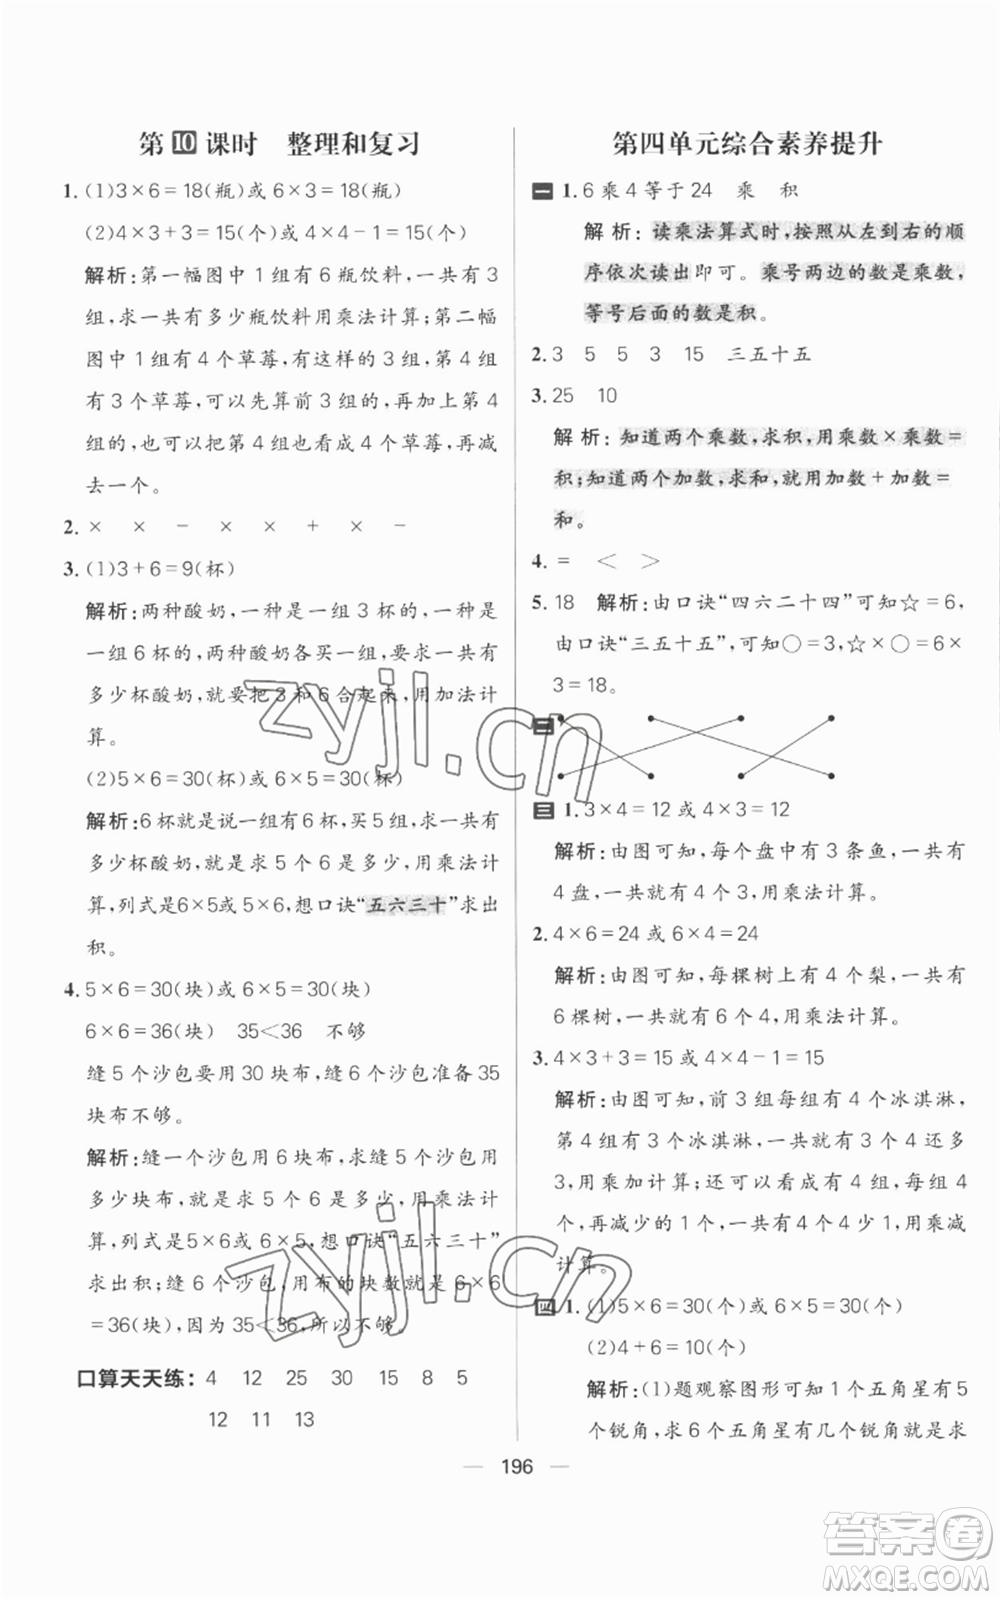 第10课时　整理和复习
1. (1)3×6=18(瓶)或 6×3=18(瓶)
(2)4×3+3=15(个)或 4×4-1=15(个)
解析:第一幅图中 1 组有 6 瓶饮料,一共有 3
组,求一共有多少瓶饮料用乘法计算;第二幅
图中 1 组有 4 个草莓,有这样的 3 组,第 4 组
有 3 个草莓,可以先算前 3 组的,再加上第 4
组的,也可以把第 4 组也看成 4 个草莓,再减
去一个。
2. × × - × × + × -
3. (1)3+6=9(杯)
解析:两种酸奶,一种是一组 3 杯的,一种是
一组 6 杯的,两种酸奶各买一组,要求一共有
多少杯酸奶,就要把 3 和 6 合起来,用加法计
算。
(2)5×6=30(杯)或 6×5=30(杯)
解析:6 杯就是说一组有 6 杯,买 5 组,求一共有
多少杯酸奶,就是求 5 个 6 是多少,用乘法计
算,列式是6×5或 5×6,想口诀“五六三十”求出
积。
4. 5×6=30(块)或 6×5=30(块)
6×6=36(块)　35<36　不够
缝 5 个沙包要用 30 块布,缝 6 个沙包准备 35
块布不够。
解析:缝一个沙包用 6 块布,求缝 5 个沙包用
多少块布,就是求 5 个 6 是多少,用乘法计
算,列式是 5×6 或 6×5,想口诀“五六三十”
求出积;缝 6 个沙包,用布的块数就是 6×6
=36(块),因为 35<36,所以不够。
口算天天练: 4 12 25 30 15 8 5
12 11 13
第四单元综合素养提升
一 1. 6 乘 4 等于 24　乘　积
解析:读乘法算式时,按照从左到右的顺
序依次读出即可。乘号两边的数是乘数,
等号后面的数是积。
2. 3 5 5 3 15 三五十五
3. 25 10
解析:知道两个乘数,求积,用乘数×乘数=
积;知道两个加数,求和,就用加数+加数=
和。
4. = < >
5. 18　解析:由口诀“四六二十四”可知☆=6,
由口诀“三五十五”,可知○=3,☆×○=6×
3=18。
二
三 1. 3×4=12 或 4×3=12
解析:由图可知,每个盘中有 3 条鱼,一共有
4 盘,一共就有 4 个 3,用乘法计算。
2. 4×6=24 或 6×4=24
解析:由图可知,每棵树上有 4 个梨,一共有
6 棵树,一共就有 6 个 4,用乘法计算。
3. 4×3+3=15 或 4×4-1=15
解析:由图可知,前 3 组每组有 4 个冰淇淋,
第 4 组有 3 个冰淇淋,一共就有 3 个 4 还多
3,用乘加计算;还可以看成有 4 组,每组 4
个,再减少的 1 个,一共有 4 个 4 少 1,用乘减
计算。
四 1. (1)5×6=30(个)或 6×5=30(个)
(2)4+6=10(个)
解析:(1)题观察图形可知 1 个五角星有 5
个锐角,求 6 个五角星有几个锐角,就是求
— 196 —
zyjl.cn
zyjl.cn
答案卷
MXQE.COM